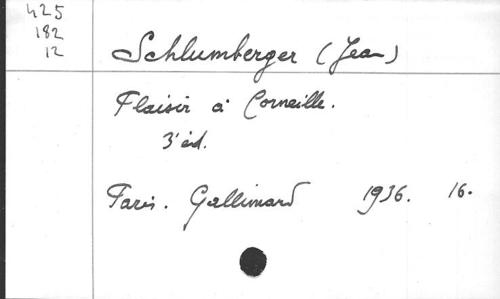 425
182
12
Schlumberger (Jean)
Plaisir à Corneille.
3'éd.
Paris. Gallimard 1936. 16.